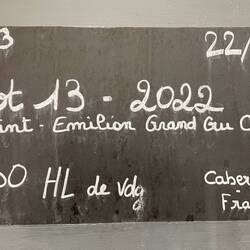 3 22/
ot 13 - 2022
int - Emilion Grand Cru C
00 HL de vdg Caber
Fra